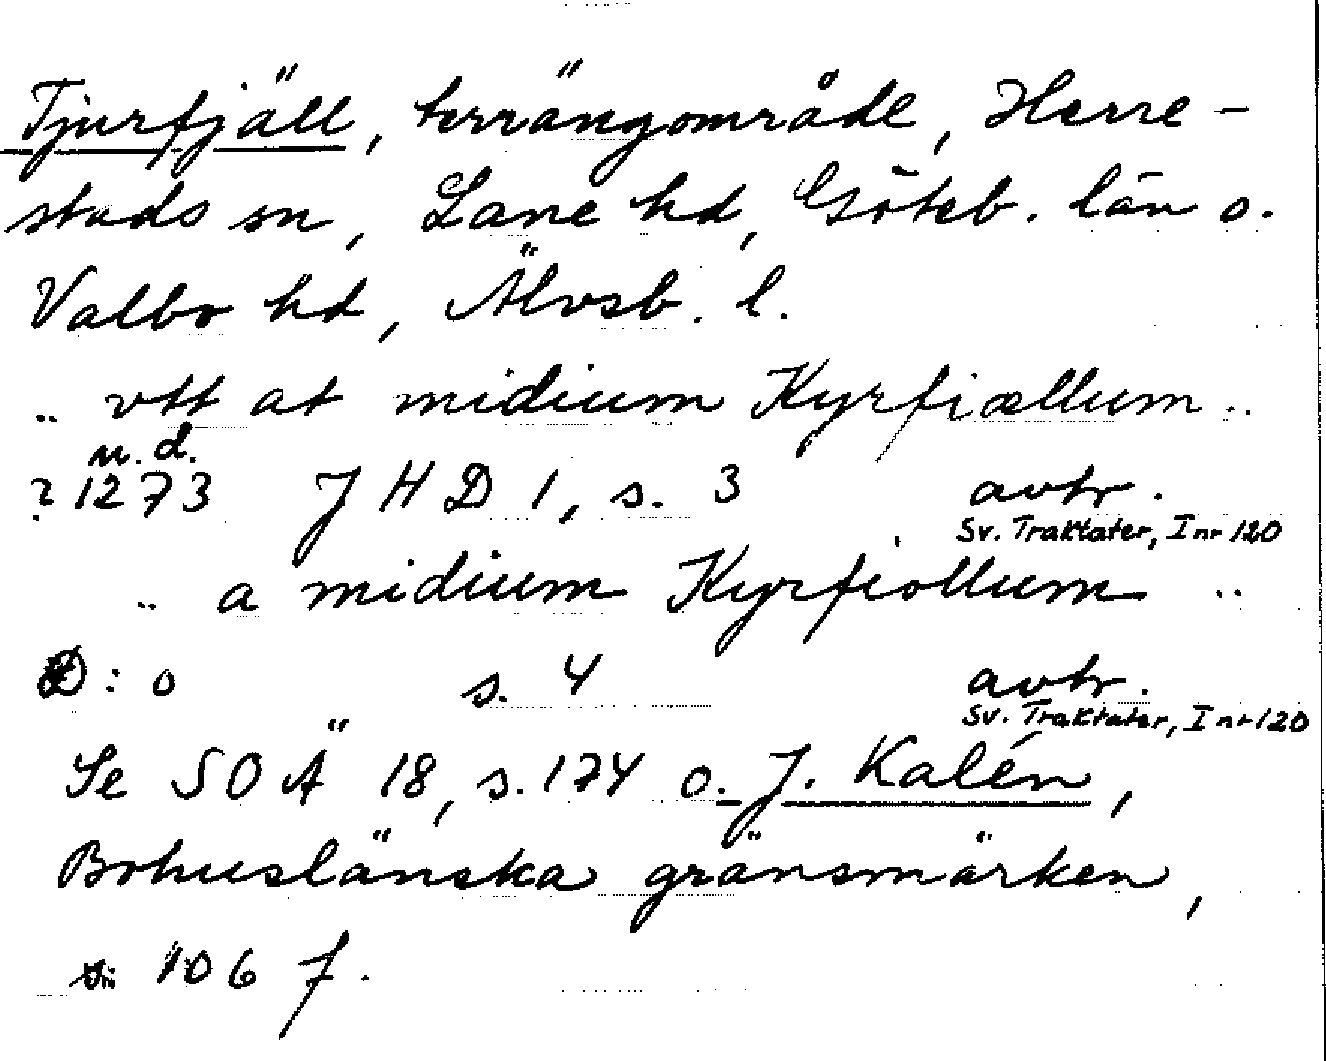 Tjurfjäll, terrängområde, Herre-
stads sn, Lane hd, Göteb. län o.
Valbo hd, Älvsb. l.
.. vtt at midium Kyrfiællum ..
u.d.
? 1273 JHD 1, s. 3 avtr.
Sv. Traktater, I nr 120
.. a midium Kyrfiollum ..
D:o s. 4 avtr.
Sv. Traktater, I nr 120
Se SOÄ 18, s. 174 o. J. Kalén,
Bohuslänska gränsmärken,
s. 106 f.